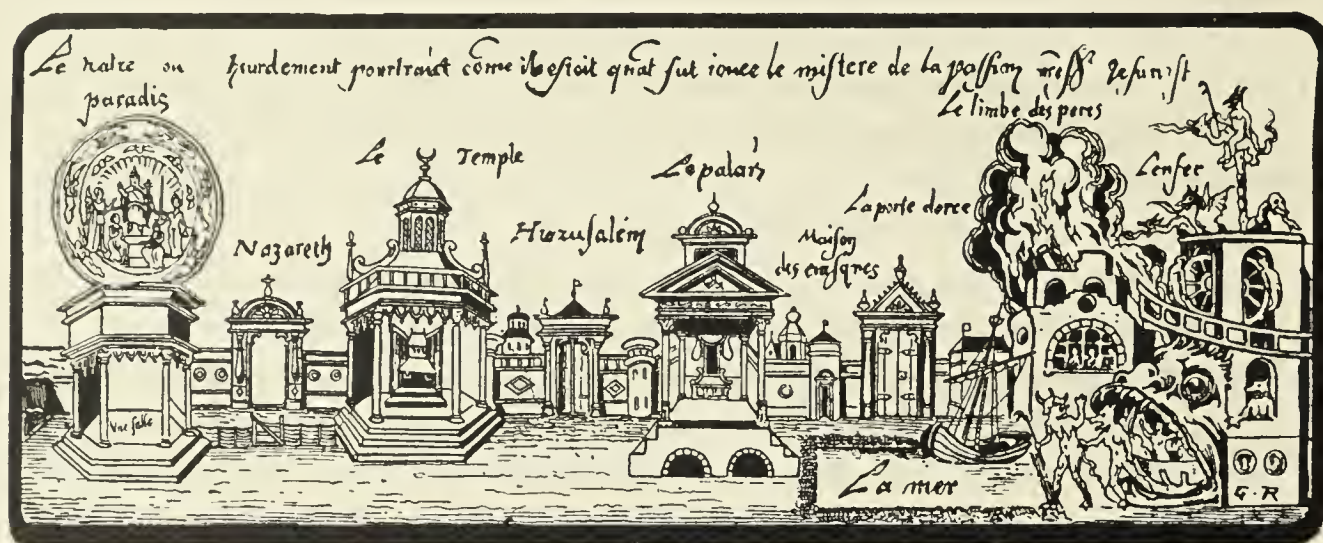 Le hatre ou hourdement pourtraict cõme il estoit quãt fut iouee le mistere de la passion
paradis
Le limbe des peres
Le Temple
Le palais
Lenfer
La porte doree
Nazareth
Hierusalem
Maison
des evesques
Vne salle
La mer
G·R